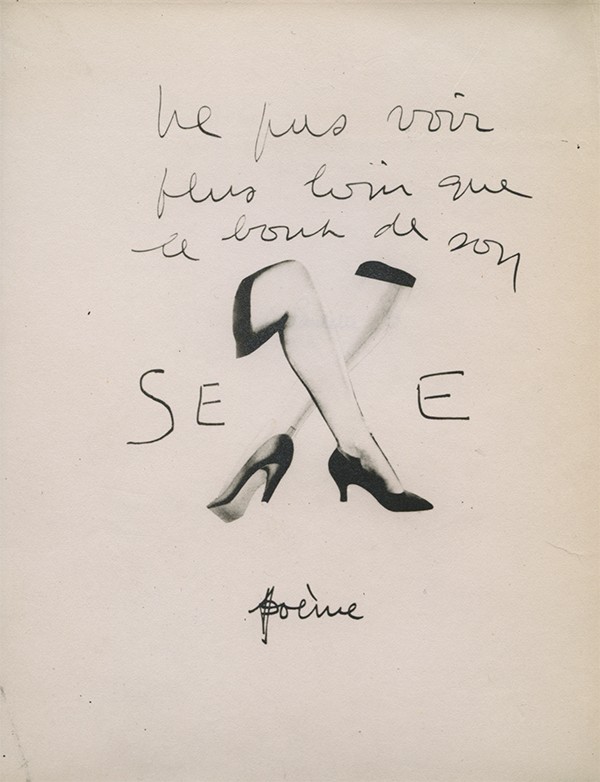 Ne pas voir
plus loin que
le bout de son
SE E
poème